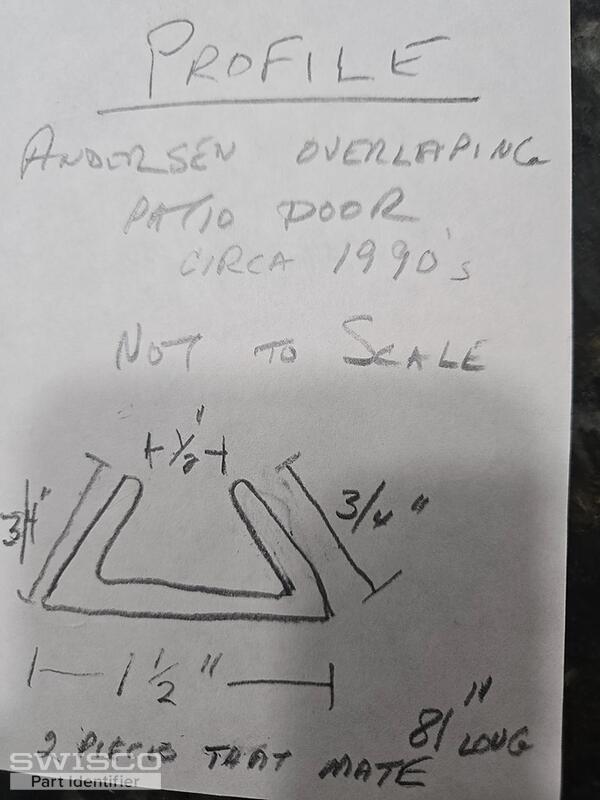 PROFILE
ANDERSEN OVERLAPING
PATIO DOOR
CIRCA 1990's
NOT TO SCALE
1/2"
3/4"
3/4"
1 1/2"
81" LONG
2 PIECES THAT MATE
SWISCO
Part Identifier